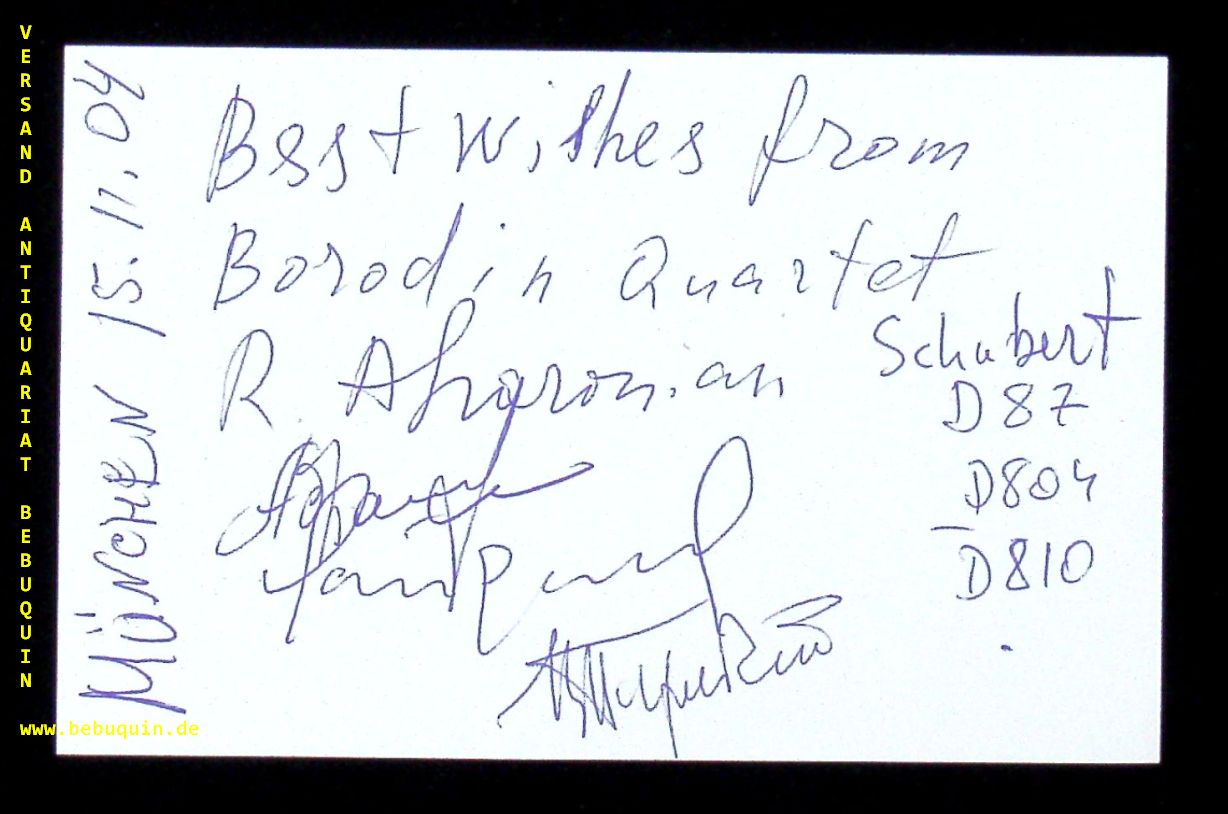 VERSAND ANTIQUARIAT BEBUQUIN
www.bebuquin.de
MÜNCHEN 15.11.04
Best wishes from
Borodin Quartet
R. Aharonian
Schubert
D87
D804
D810